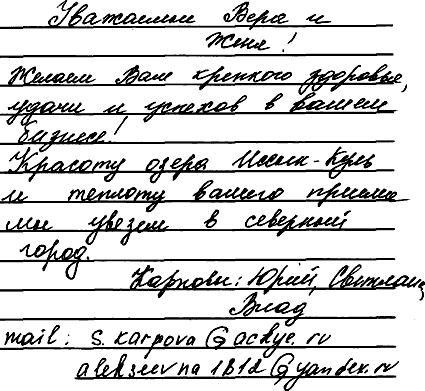 Уважаемые Вера и
Женя!
Желаем Вам крепкого здоровья,
удачи и успехов в вашем
бизнесе!
Красоту озера Иссык-Куль
и теплоту вашего приема
мы увезем в северный
город.
Карповы: Юрий, Светлана,
Влад
mail: s.karpova@ackye.ru
alekseevna1812@yandex.ru